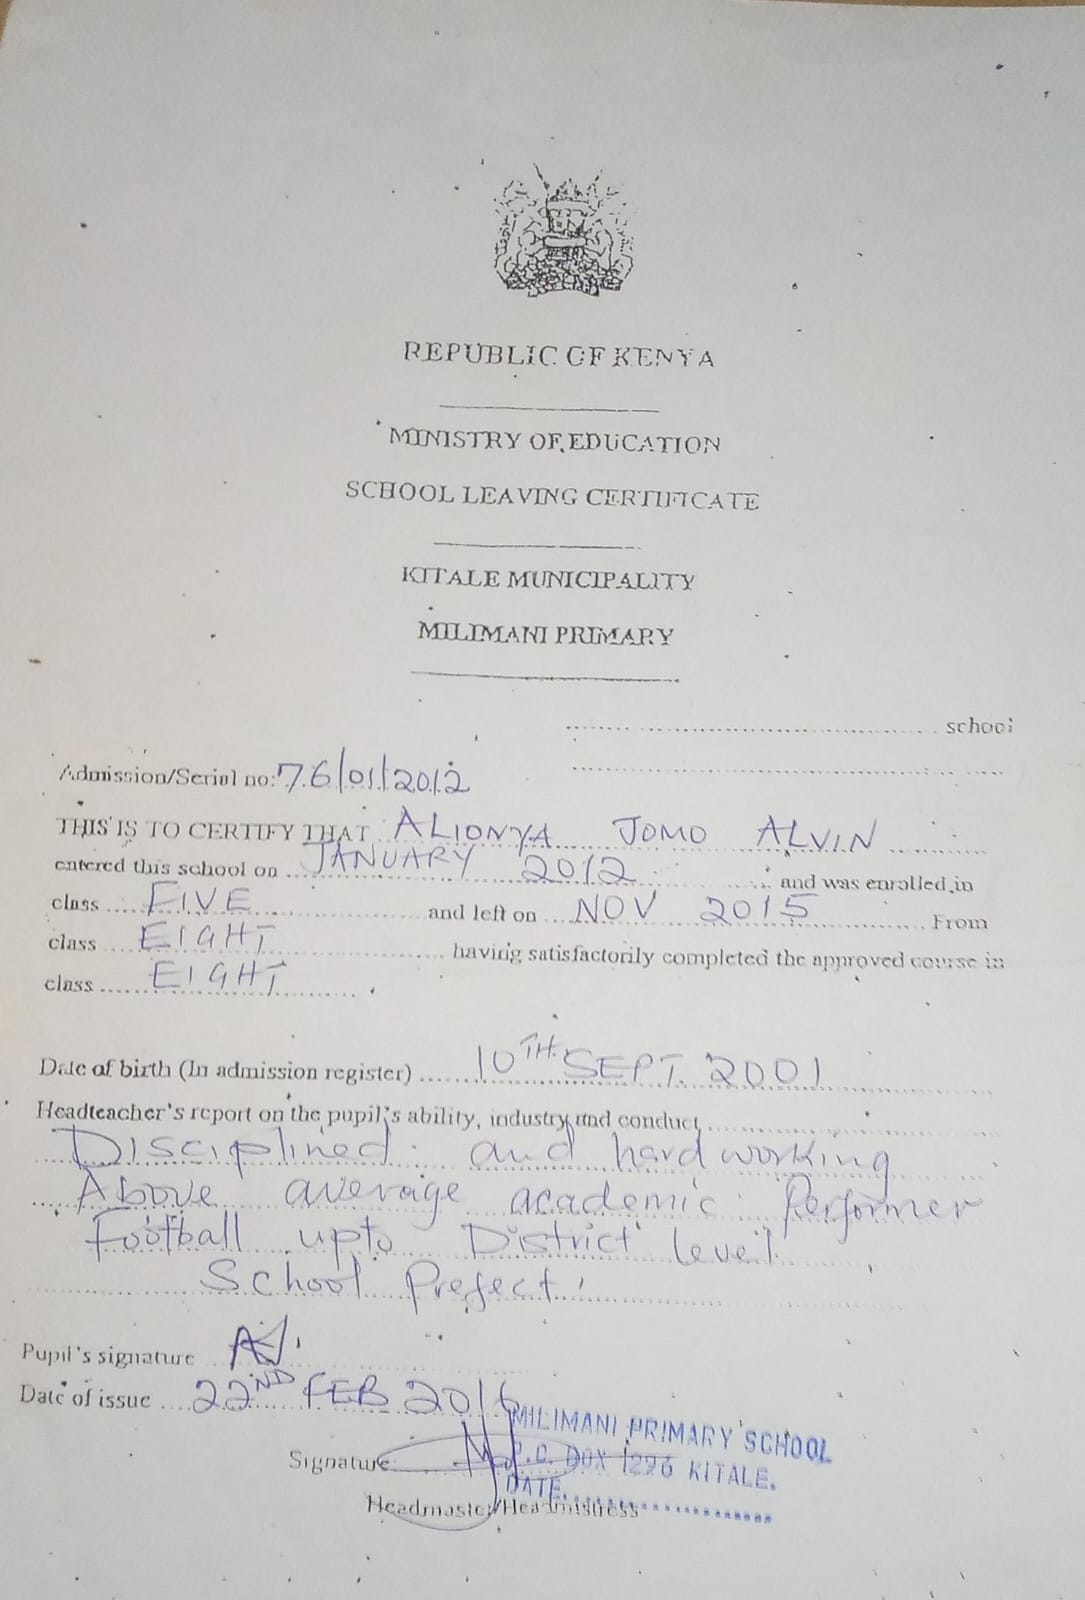 REPUBLIC OF KENYA
MINISTRY OF EDUCATION
SCHOOL LEAVING CERTIFICATE
KITALE MUNICIPALITY
MILIMANI PRIMARY
school
Admission/Serial no: 76/01/2012
THIS IS TO CERTIFY THAT ALIONYA JOMO ALVIN
entered this school on JANUARY 2012 and was enrolled in
class FIVE and left on NOV 2015 From
class EIGHT having satisfactorily completed the approved course in
class EIGHT
Date of birth (In admission register) 10TH SEPT. 2001
Headteacher's report on the pupil's ability, industry and conduct
Disciplined and hardworking
Above average academic Performer
Football upto District level
School Prefect.
Pupil's signature AJ.
Date of issue 22ND FEB 2016
MILIMANI PRIMARY SCHOOL
P.O. BOX 1296 KITALE.
DATE
Signature
Headmaster/Headmistress